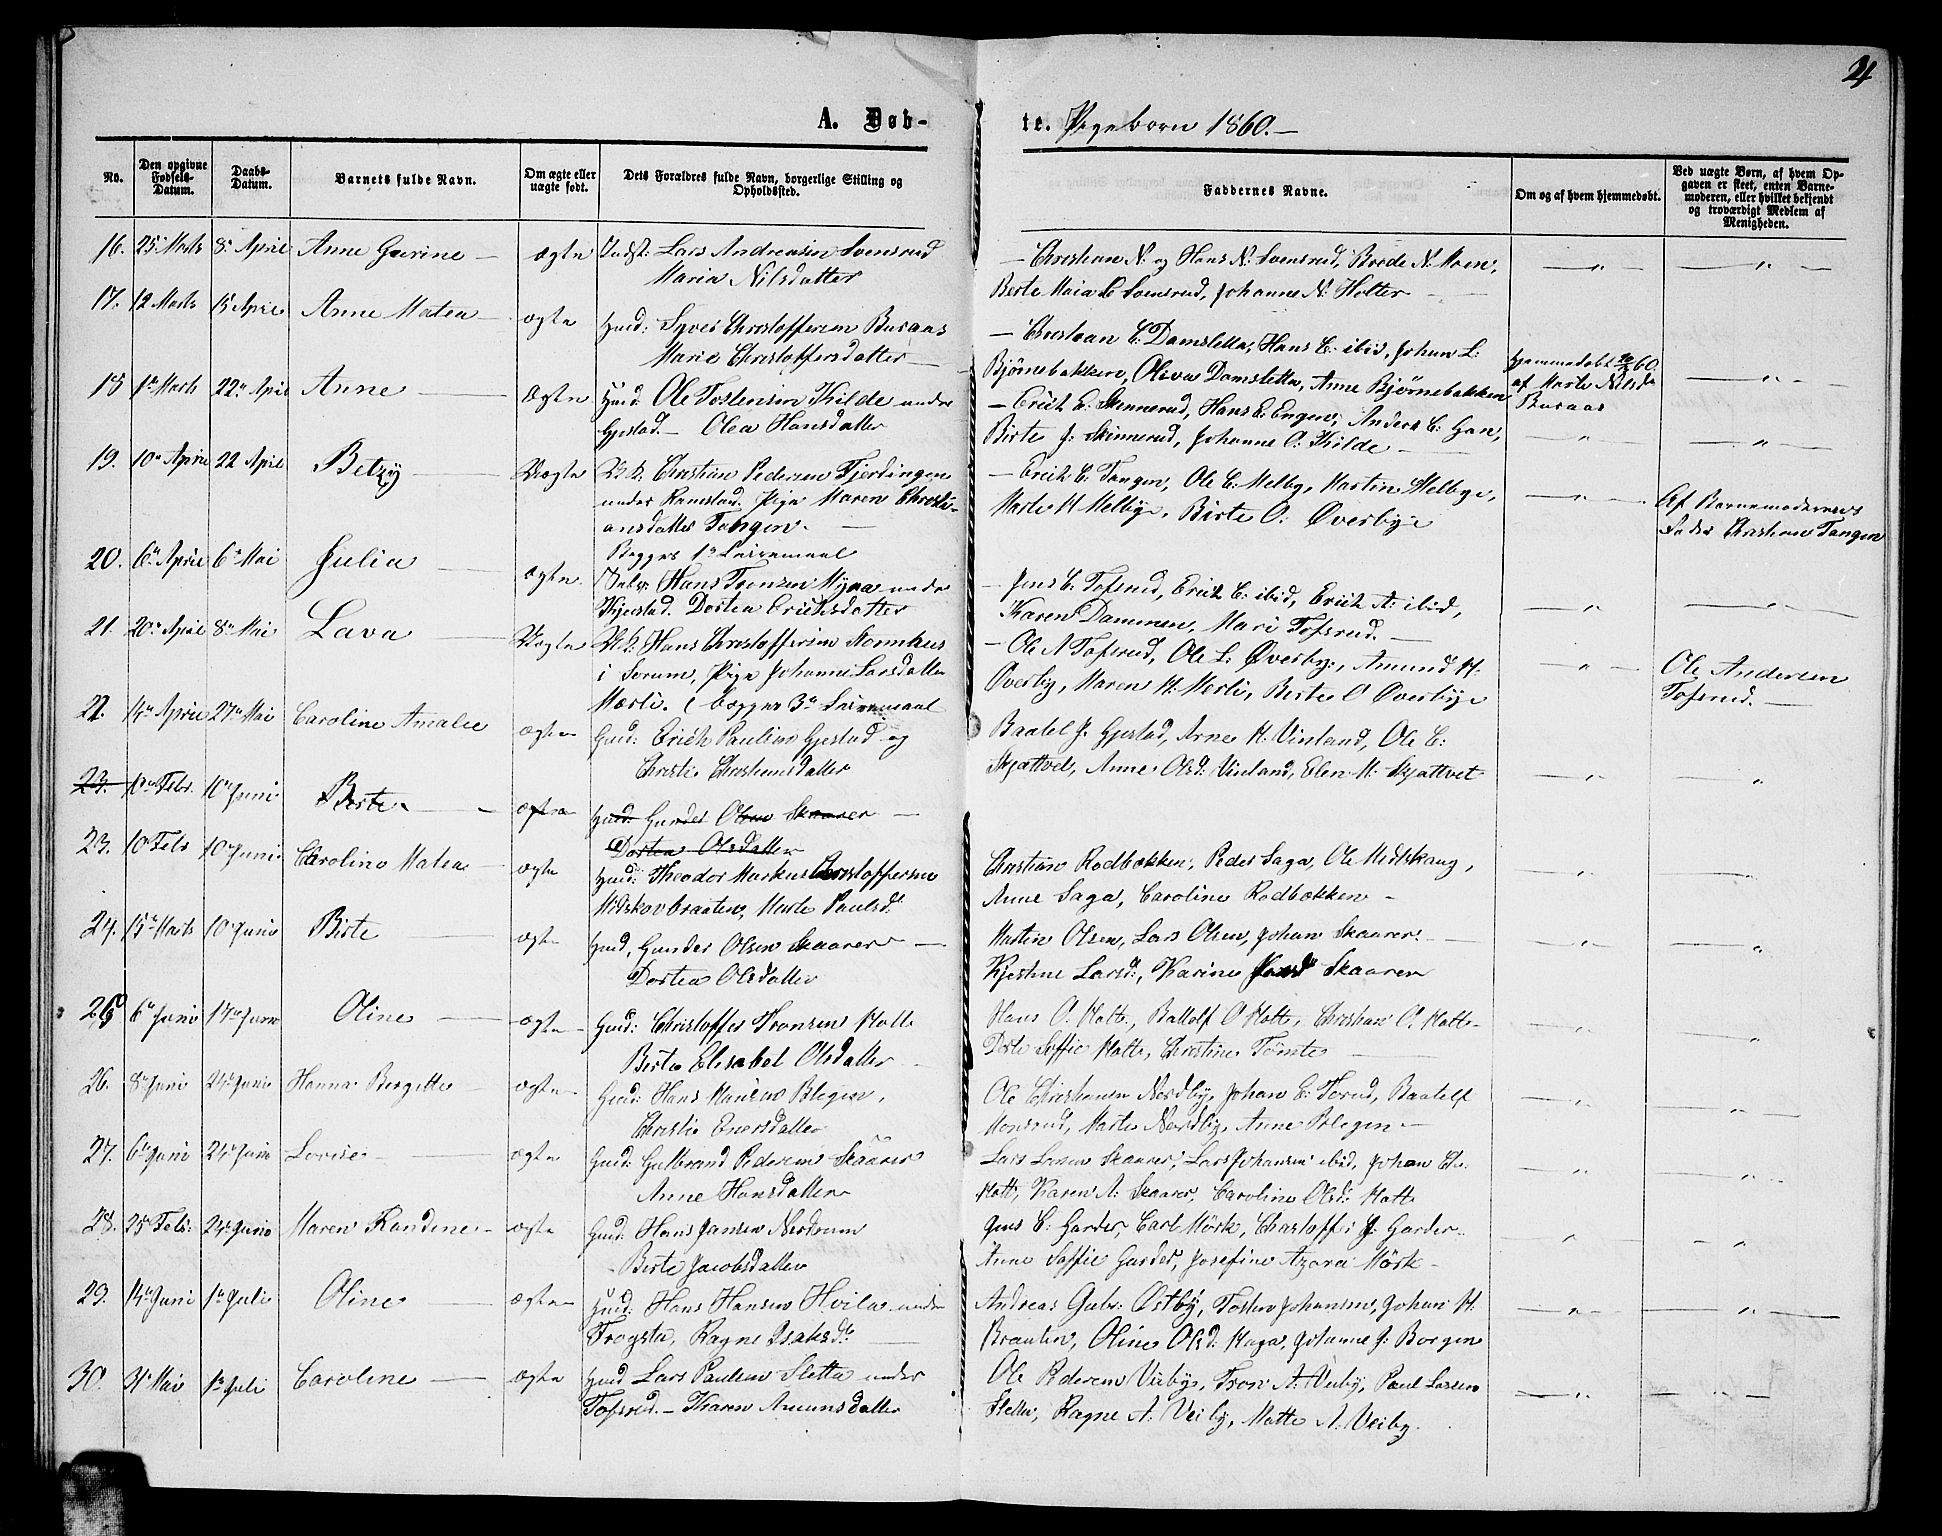 4
A. Døb-
te. Pigebørn 1860.
No.
Den opgivne Fødsels-Datum.
Daabs-Datum.
Barnets fulde Navn.
Om ægte eller uægte født.
Dets Forældres fulde Navn, borgerlige Stilling og Opholdssted.
Faddernes Navne.
Om og af hvem hjemmedøbt.
Ved uægte Børn, af hvem Opgaven er skeet, enten Barnemoderen, eller hvilket bekjendt og troværdigt Medlem af Menigheden.
16. 25 Marts 8 April Anne Gurine ægte Indst: Lars Andreasen Svensrud
Maria Nilsdatter
Christian N. og Hans N. Svensrud, Brede N. Moen,
Berte Maia Svensrud, Johanne N. Holter
17. 12 Marts 15 April Anne Matea ægte Huusd: Syver Christoffersen Busaas
Marie Christoffersdatter
Christian C. Damsletta, Hans C. ibid, Johan L.
Bjørnebakken, Oliva Damsletta, Anne Bjørnebakken
Hjemmedøbt 60
af Marte Nilsd
Busaas
18 1 Marts 22 April Anne ægte Huusd: Ole Tostensen Kilde under
Gjestad. Olea Hansdatter
Erich E. Skinnerud, Hans E. Engen, Anders C. Gan,
Birte J. Skinnerud, Johanne O. Kilde
19. 10 April 22 April Betzy Uægte U.K: Christian Pedersen Fjerdingen
under Ramstad. Pige Maren Christi-
ansdatter Tangen.
Begges 1ste Leiermaal
Erich C. Tangen, Ole C. Melby, Martin Melbye,
Marte H Melbye, Birte O. Øverbye
Af Barnemoderens
Fader Christian Tangen
20. 6 April 6 Mai Julia ægte Selv: Hans Tronsen Myraa under
Kjerstad. Dortea Erichsdatter
Jens C. Tofsrud, Erich C. ibid, Erich A. ibid,
Karen Dammen, Mari Tofsrud.
21. 20 April 8 Mai Lava Uægte U.K: Hans Christoffersen Stomhus
i Sørum, Pige Johanne Larsdatter
Mærli. (begges 3die Leiermaal
Ole A Tofsrud, Ole L. Øverby, Amund H.
Øverby, Maren H. Merli, Birte O Øverbye
Ole Andersen
Tofsrud.
22. 14 April 27 Mai Caroline Amalie ægte Gaard: Erich Paulsen Gjestad og
Christi Christiansdatter
Baatel J. Gjestad, Arne H. Vinland, Ole E.
Skjattvet, Anne Olsd: Vinland, Elen M. Skjattvet
23. 10 Febr. 10 Juni Berte ægte Huusd: Gunder Olsen Skaarer
Dortea Olsdatter
23. 10 Febr 10 Juni Caroline Matea ægte Huusd: Theodor Markus Christoffersen
Midskovbraaten, Marte Paulsd.
Christian Rodbækken, Peder Saga, Ole Midtskaug,
Anne Saga, Caroline Rodbækken
24. 15 Marts 10 Juni Birte ægte Huusd, Gunder Olsen Skaarer
Dortea Olsdatter
Martin Olsen, Lars Olsen, Johan Skaarer.
Kjestine Larsd:, Karine Skaarer
25 6 Juni 17 Juni Oline ægte Gaard: Christoffer Tronsen Holt
Birte Elisabet Olsdatter
Hans O. Holte, Ballolf O Holte, Christian O. Holte
Dorte Soffie Holte, Christine Tømte
26. 8 Juni 24 Juni Hanna Bergitte ægte Gaard: Hans Hansen Blegen,
Christi Enersdatter
Ole Christiansen Nordby, Johan E. Torud, Baatelf
Monsrud, Marte Nordby, Anne Blegen
27. 6 Juni 24 Juni Lovise ægte Gaard: Gulbrand Pedersen Skaarer
Anne Hansdatter
Lars Larsen Skaarer, Lars Johansen ibid, Johan Chr.
Holt, Karen A. Skaarer, Caroline Olsd: Holt
28. 25 Febr: 24 Juni Maren Randine ægte Gaard: Hans Jansen Nordrum
Birte Jacobsdatter
Jens C. Garder, Carl Mörk, Christoffer J. Garder
Anne Soffie Garder, Josefine Azora Mörk
29. 14 Juni 1 Juli Oline ægte Huusd: Hans Hansen Hvila under
Frogsta, Ragne Isaksd.
Andreas Gulbr: Østby, Tosten Johansen, Johan H.
Braaten, Oline Olsd. Haga, Johanne J. Borgen
30. 31 Mai 1 Juli Caroline ægte Huusd Lars Paulsen Sletta under
Tofsrud. Karen Amunsdatter
Ole Pedersen Veiby, Tron A. Veiby, Paul Larsen
Sletta, Ragne A. Veiby, Matte A. Veiby.